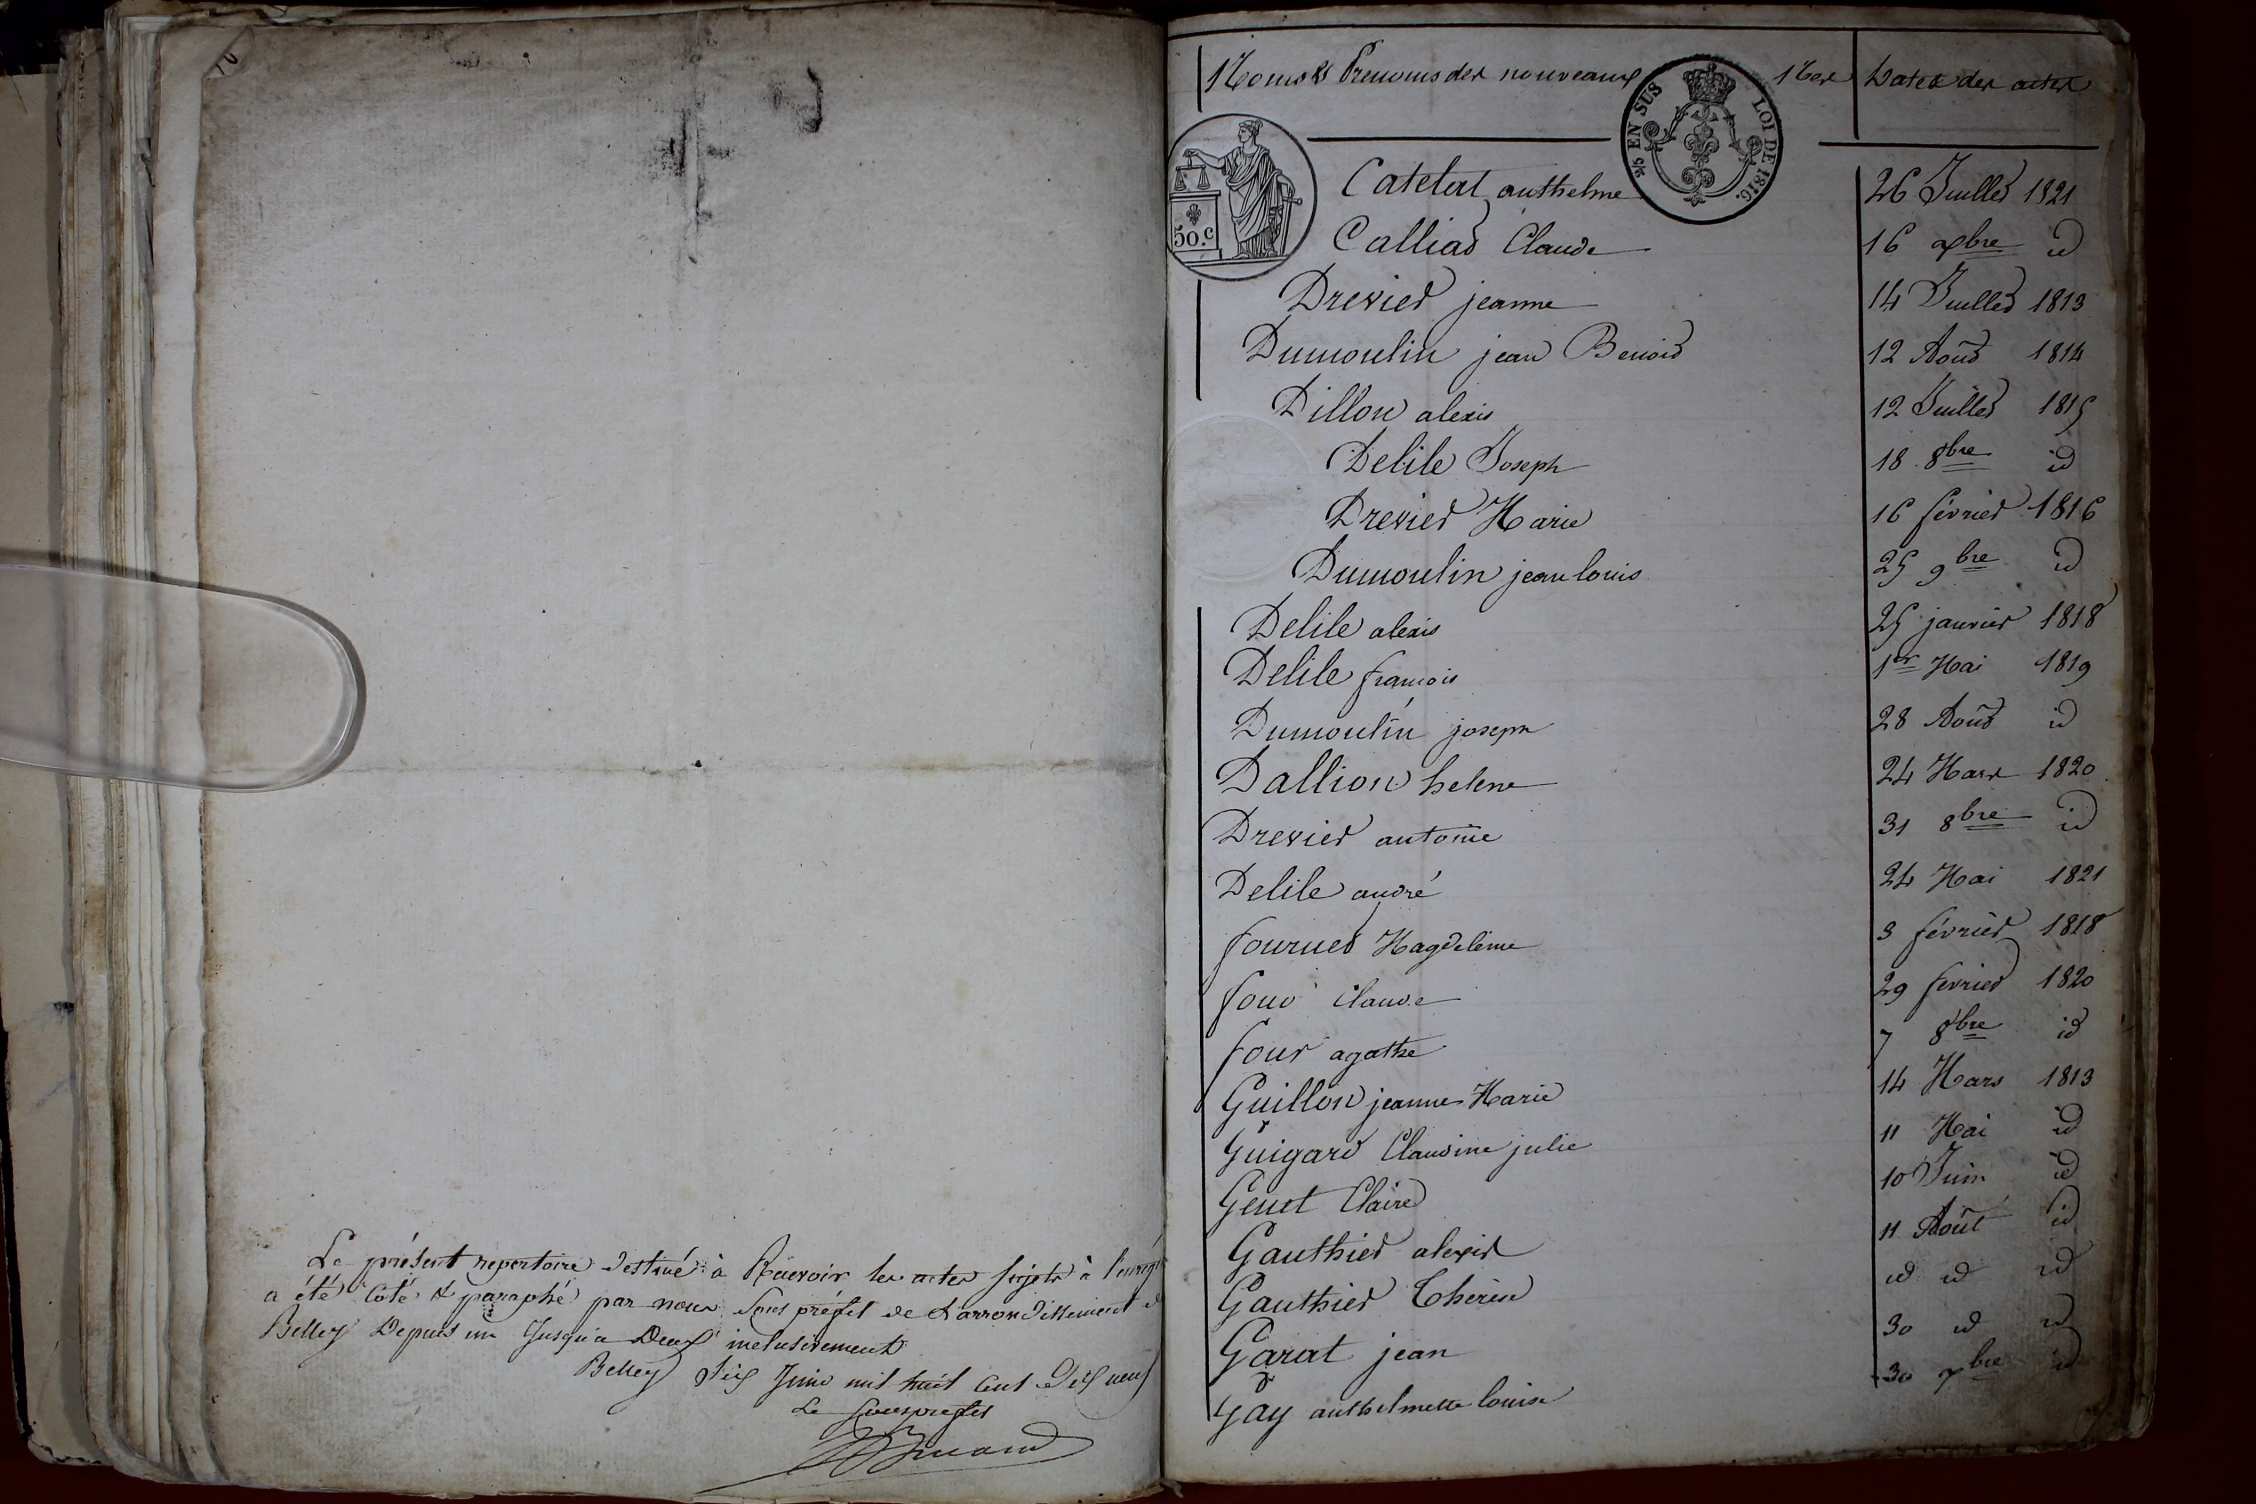 Le présent repertoire destiné à Recevoir les actes sujets à l'enreg
a été Coté & paraphé par nous Sous préfet de L'arrondissement d
Belley Depuis un Jusqu'a Deux inclusivement
Belley dix Juin mil huit Cent Dix neuf
Le Sousprefet
Noms & Prenoms des nouveaux Nes Dates des actes
EN SUS LOI DE 1816.
50.c
Catelat anthelme 26 Juillet 1821
Calliat Claude 16 xbre id
Drevet jeanne 14 Juillet 1813
Dumoulin jean Benoit 12 Août 1814
Dillon alexis 12 Juillet 1815
Delile Joseph 18 8bre id
Drevet Marie 16 février 1816
Dumoulin jean louis 25 9bre id
Delile alexis 25 janvier 1818
Delile francois 1er Mai 1819
Dumoulin joseph 28 Août id
Dallion helene 24 Mars 1820
Drevet antoine 31 8bre id
Delile andré 24 Mai 1821
fournet Magdeleine 3 février 1818
four Claude 29 fevrier 1820
four agathe 7 8bre id
Guillon jeanne Marie 14 Mars 1813
Guigard Claudine julie 11 Mai id
Genet Claire 10 Juin id
Gauthier alexis 11 Août id
Gauthier Therèse id id id
Garat jean 30 id id
Gay anthelmette louise 30 7bre id